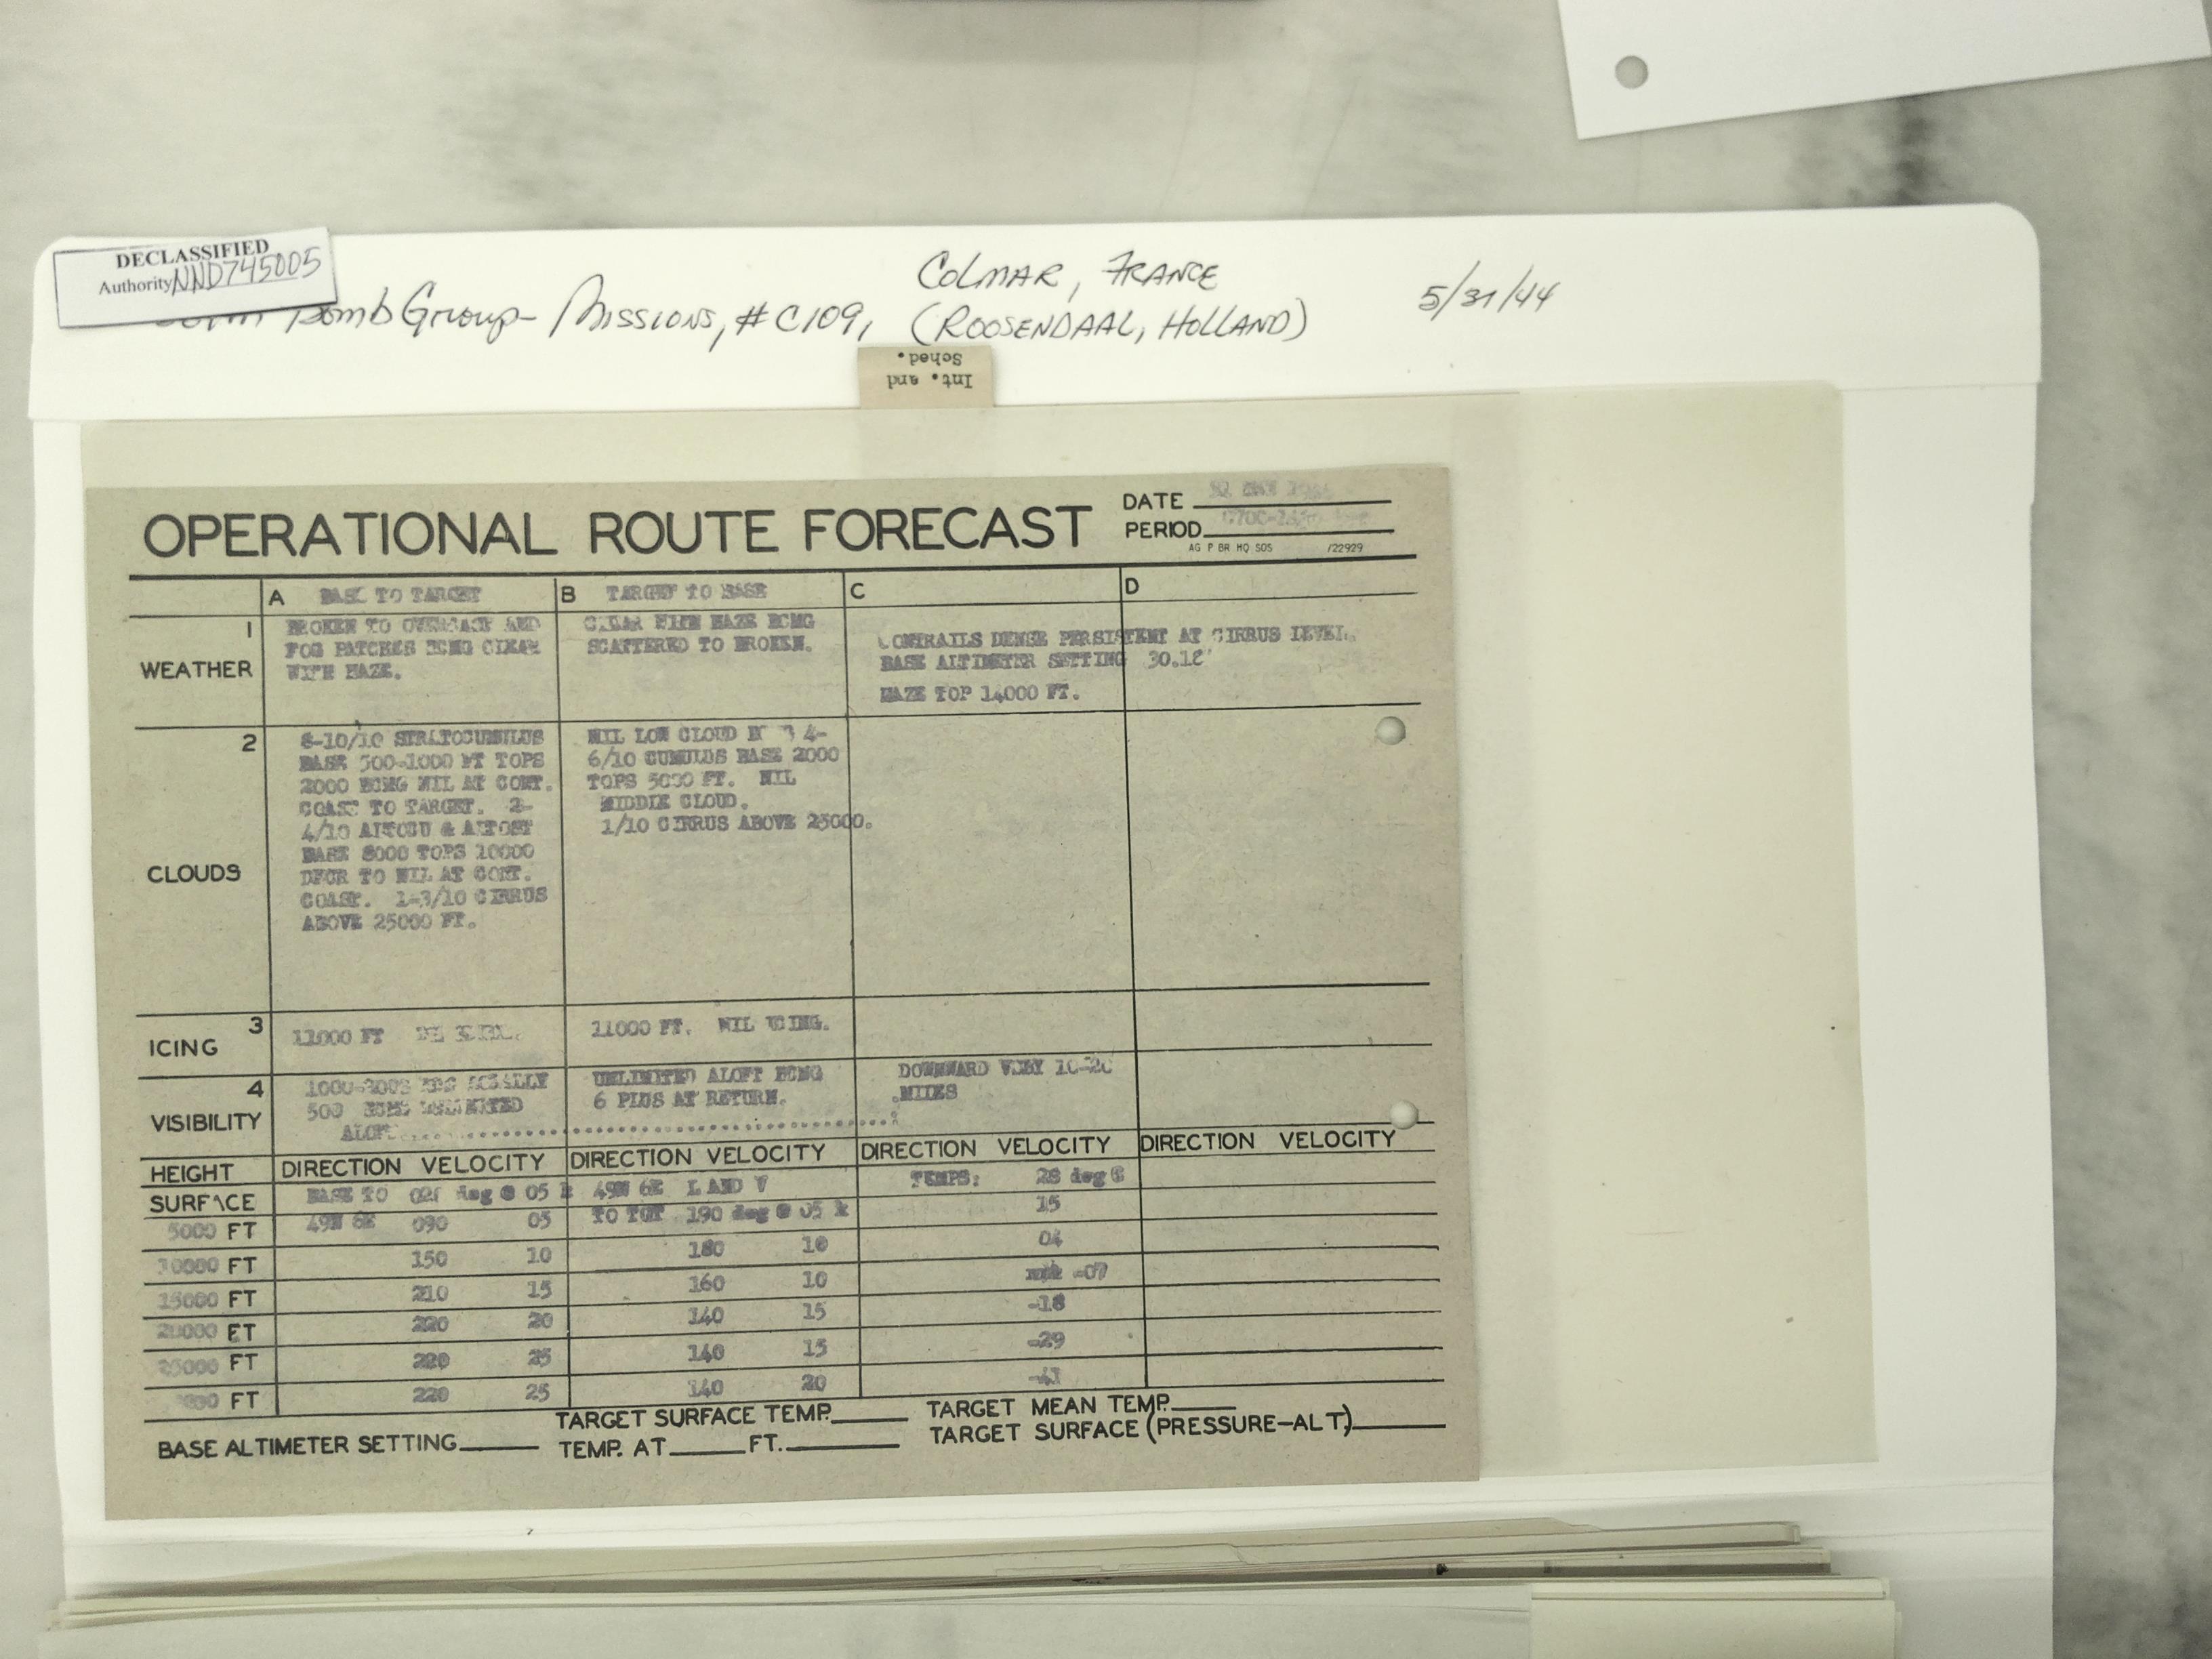 DECLASSIFIED
Authority NND745005
Bomb Group- Missions, #C109,
COLMAR, FRANCE
(ROOSENDAAL, HOLLAND)
5/31/44
Int. and
Sched.
OPERATIONAL ROUTE FORECAST
DATE
PERIOD
AG P BR HQ SOS /22929
A BASE TO TARGET
B TARGET TO BASE
C
D
1
WEATHER
BROKEN TO OVERCAST AND
FOG PATCHES BCMG CLEAR
WITH HAZE.
CLEAR WITH HAZE BCMG
SCATTERED TO BROKEN.
CONTRAILS DENSE PERSISTENT AT CIRRUS LEVEL.
BASE ALTIMETER SETTING 30.12
HAZE TOP 14000 FT.
2
CLOUDS
8-10/10 STRATOCUMULUS
BASE 500-1000 FT TOPS
2000 BCMG NIL AT CONT.
COAST TO TARGET. 2-
4/10 ALTOCU & ALTOST
BASE 8000 TOPS 10000
DECR TO NIL AT CONT.
COAST. 1-3/10 CIRRUS
ABOVE 25000 FT.
NIL LOW CLOUD 4-
6/10 CUMULUS BASE 2000
TOPS 5000 FT. NIL
MIDDLE CLOUD.
1/10 CIRRUS ABOVE 25000.
3
ICING
11000 FT
11000 FT. NIL ICING.
4
VISIBILITY
LOCALLY
500 UNLIMITED
ALOFT
UNLIMITED ALOFT BCMG
6 PLUS AT RETURN.
DOWNWARD VSBY 10-20
MILES
HEIGHT
DIRECTION VELOCITY DIRECTION VELOCITY DIRECTION VELOCITY DIRECTION VELOCITY
SURFACE BASE TO deg @ 05 k 49N 6E L AND V TEMPS: 28 deg C
5000 FT 49N 6E 090 05 TO TGT 190 deg @ 05 k 15
10000 FT 150 10 180 10 04
15000 FT 210 15 160 10 -07
20000 FT 220 20 140 15 -18
25000 FT 220 25 140 15 -29
FT 220 25 140 20 -41
BASE ALTIMETER SETTING
TARGET SURFACE TEMP.
TEMP. AT FT.
TARGET MEAN TEMP.
TARGET SURFACE (PRESSURE-ALT)